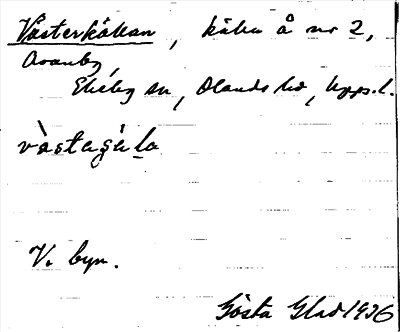 Västerkällan, källa å nr 2,
Avanby,
Ekeby sn, Olands hd, Upps. l.
V. byn.
Gösta Glad 1936